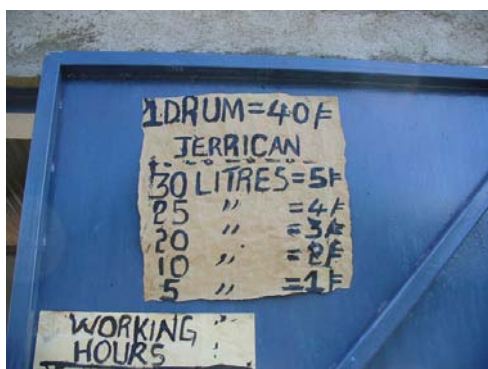 1 DRUM=40F
JERRICAN
30 LITRES=5F
25 " =4F
20 " =3F
10 " =2F
5 " =1F
WORKING :
HOURS :